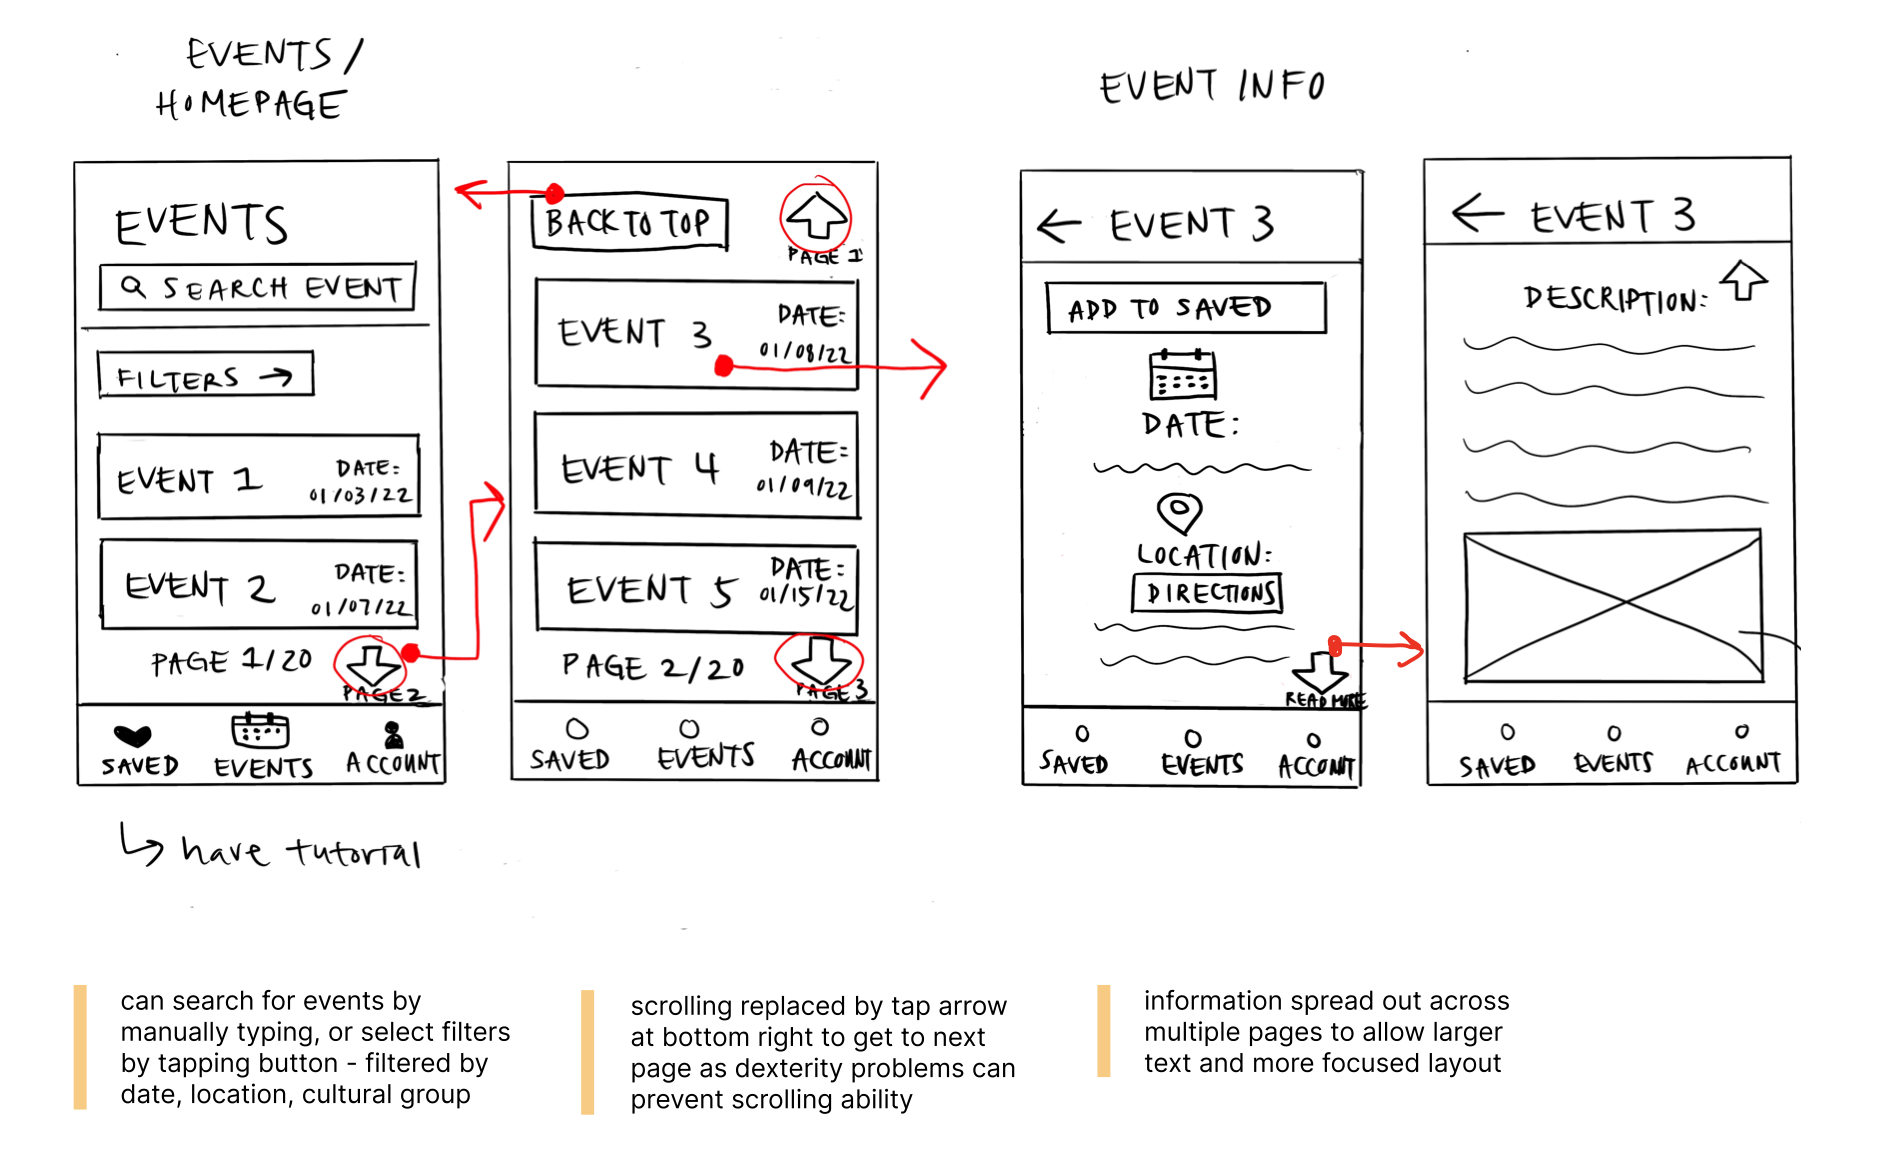 EVENTS /
HOMEPAGE
EVENTS
SEARCH EVENT
FILTERS →
EVENT 1
DATE:
01/03/22
EVENT 2
DATE:
01/07/22
PAGE 1/20
PAGE 2
SAVED
EVENTS
ACCOUNT
↳ have tutorial
BACK TO TOP
PAGE 1
EVENT 3
DATE:
01/08/22
EVENT 4
DATE:
01/09/22
EVENT 5
DATE:
01/15/22
PAGE 2/20
PAGE 3
SAVED
EVENTS
ACCOUNT
EVENT INFO
← EVENT 3
ADD TO SAVED
DATE:
LOCATION:
DIRECTIONS
READ MORE
SAVED
EVENTS
ACCOUNT
← EVENT 3
DESCRIPTION:
SAVED
EVENTS
ACCOUNT
can search for events by
manually typing, or select filters
by tapping button - filtered by
date, location, cultural group
scrolling replaced by tap arrow
at bottom right to get to next
page as dexterity problems can
prevent scrolling ability
information spread out across
multiple pages to allow larger
text and more focused layout